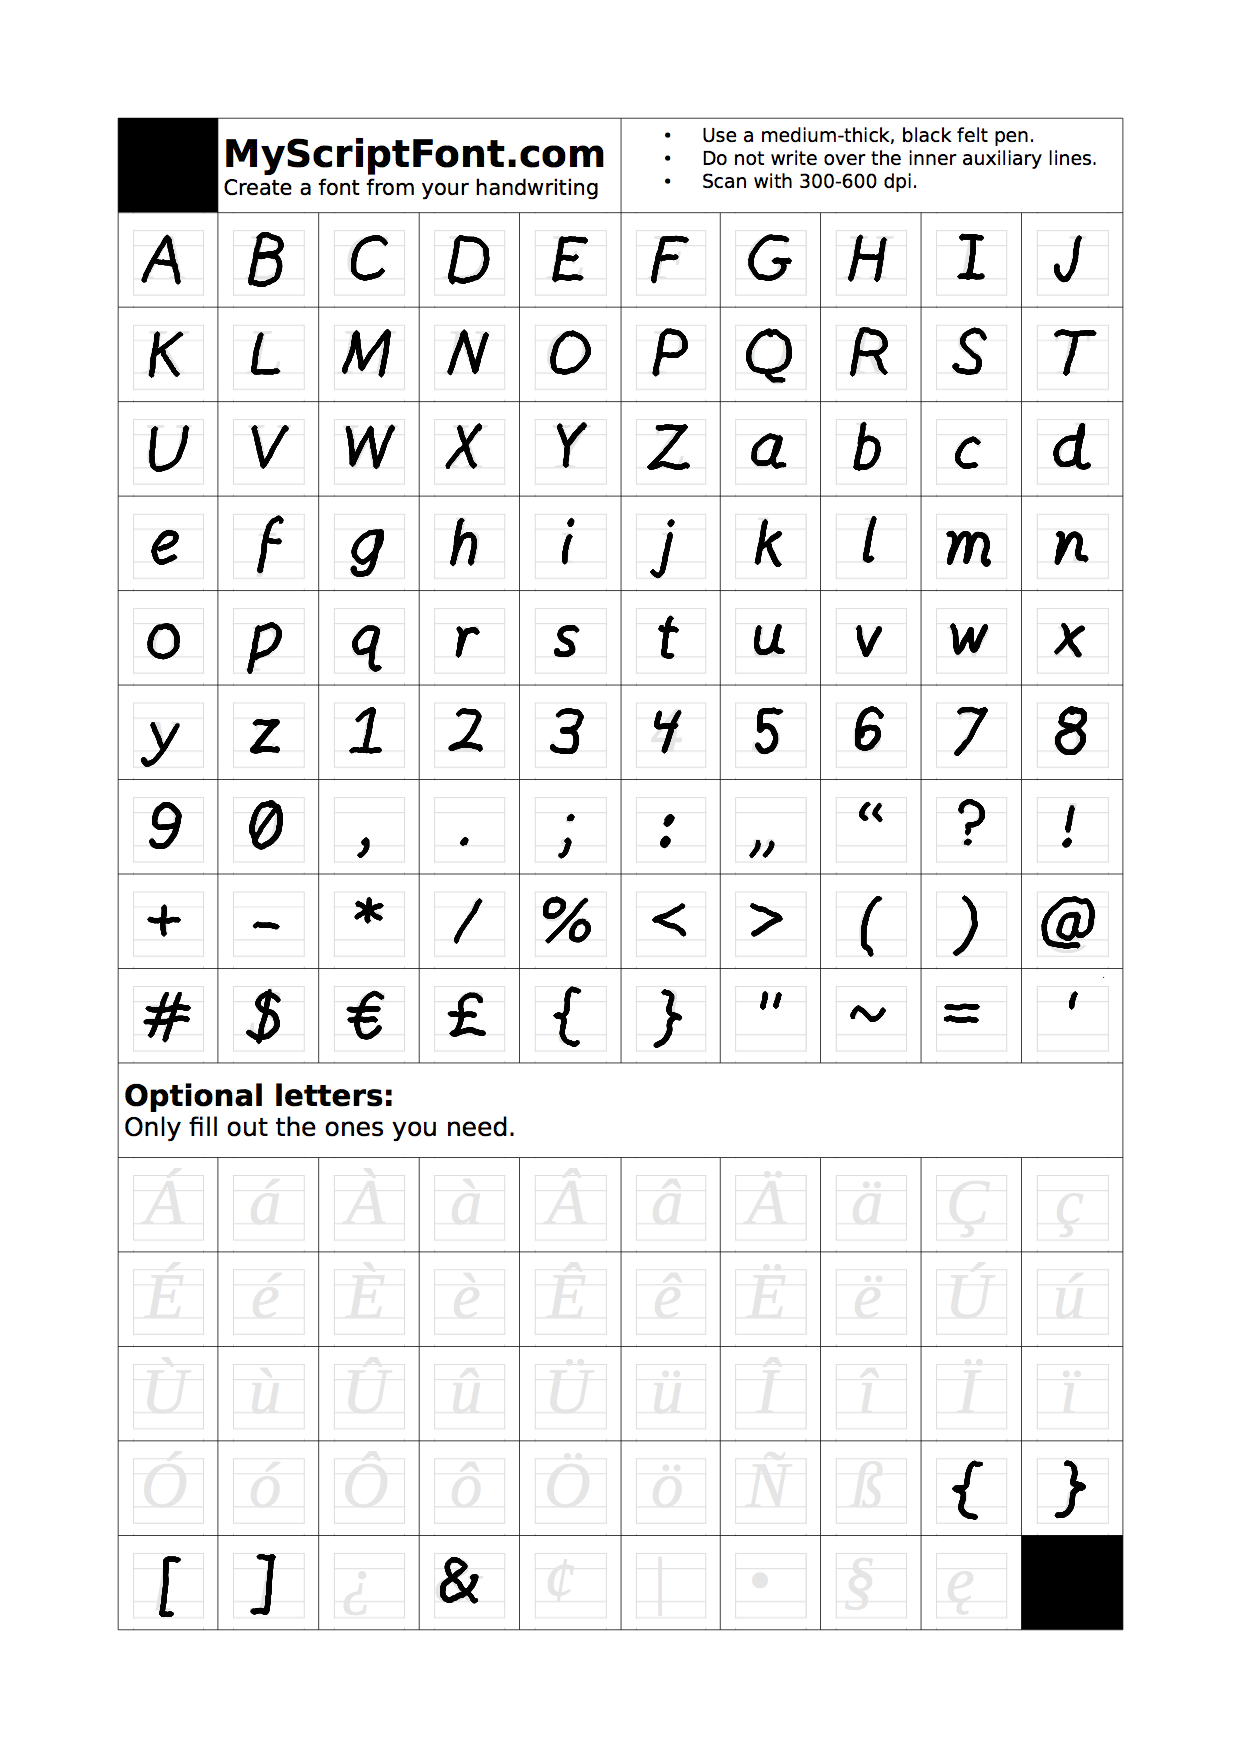 MyScriptFont.com
Create a font from your handwriting
• Use a medium-thick, black felt pen.
• Do not write over the inner auxiliary lines.
• Scan with 300-600 dpi.
A B C D E F G H I J
K L M N O P Q R S T
U V W X Y Z a b c d
e f g h i j k l m n
o p q r s t u v w x
y z 1 2 3 4 5 6 7 8
9 0 , . ; : „ “ ? !
+ - * / % < > ( ) @
# $ € £ { } " ~ = '
Optional letters:
Only fill out the ones you need.
Á á À à Â â Ä ä Ç ç
É é È è Ê ê Ë ë Ú ú
Ù ù Û û Ü ü Î î Ï ï
Ó ó Ô ô Ö ö Ñ ß { }
[ ] ¿ & ¢ | • § ę